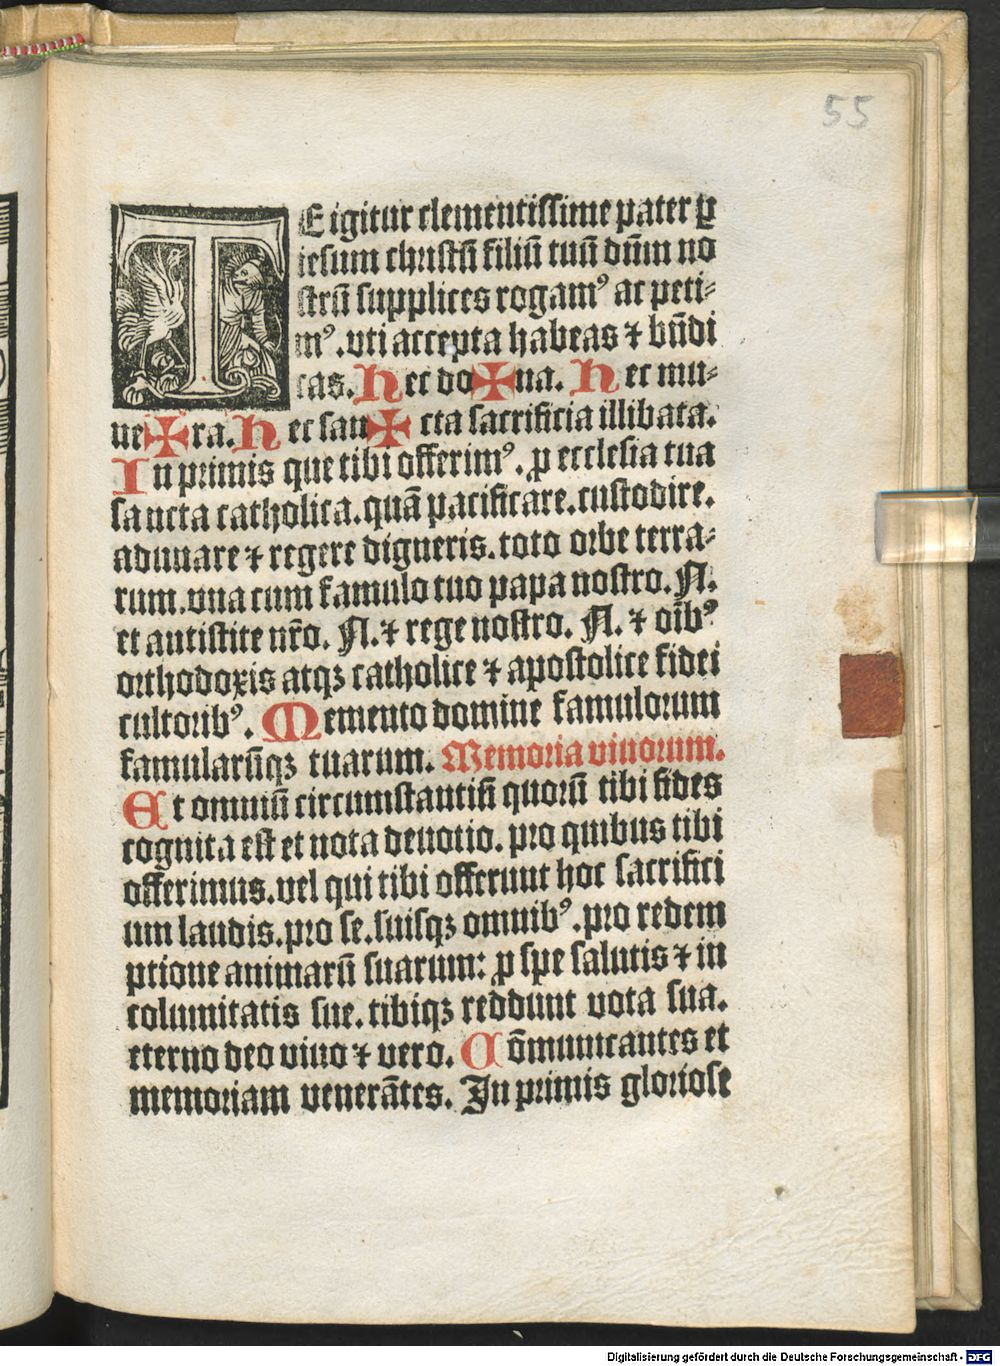 55
TE igitur clementissime pater ꝑ
iesum christū filiū tuū dn̄m no
strū supplices rogamꝰ ac peti-
mꝰ. vti accepta habeas ⁊ bn̄di
cas. Hec do✠na. Hec mu-
ne✠ra. Hec san✠cta sacrificia illibata.
In primis que tibi offerimꝰ. ꝓ ecclesia tua
sancta catholica. quā pacificare. custodire.
adunare ⁊ regere digneris. toto orbe terra-
rum. vna cum famulo tuo papa nostro. N.
et antistite nr̄o. N. ⁊ rege nostro. N. ⁊ oīb'ꝰ
orthodoxis atqꝫ catholice ⁊ apostolice fidei
cultoribꝰ. Memento domine famulorum
famularūqꝫ tuarum. Memoria viuorum.
Et omniū circumstantiū quorū tibi fides
cognita est et nota deuotio. pro quibus tibi
offerimus. vel qui tibi offerunt hoc sacrifici
um laudis. pro se. suisqꝫ omnibꝰ. pro redem
ptione animarū suarum: ꝓ spe salutis ⁊ in
columitatis sue. tibiqꝫ reddunt vota sua.
eterno deo viuo ⁊ vero. Cōmunicantes et
memoriam venerātes. In primis gloriose
Digitalisierung gefördert durch die Deutsche Forschungsgemeinschaft - DFG